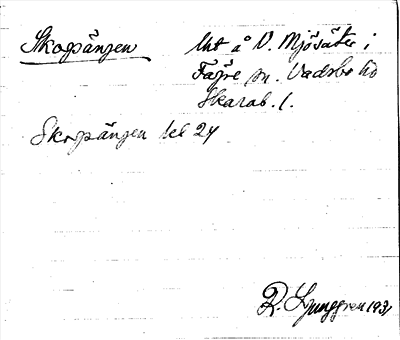 Skogsängen Urt å V. Mjösäter i
Fägre sn. Vadsbo hd
Skarab. l.
Skogsängen bek 24
R. Ljunggren 1931